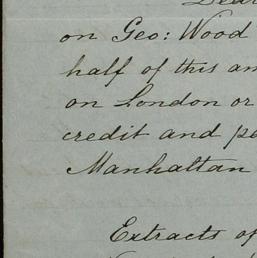 Dear
on Geo: Wood
half of this am
on London or
credit and pe
Manhattan
Extracts of